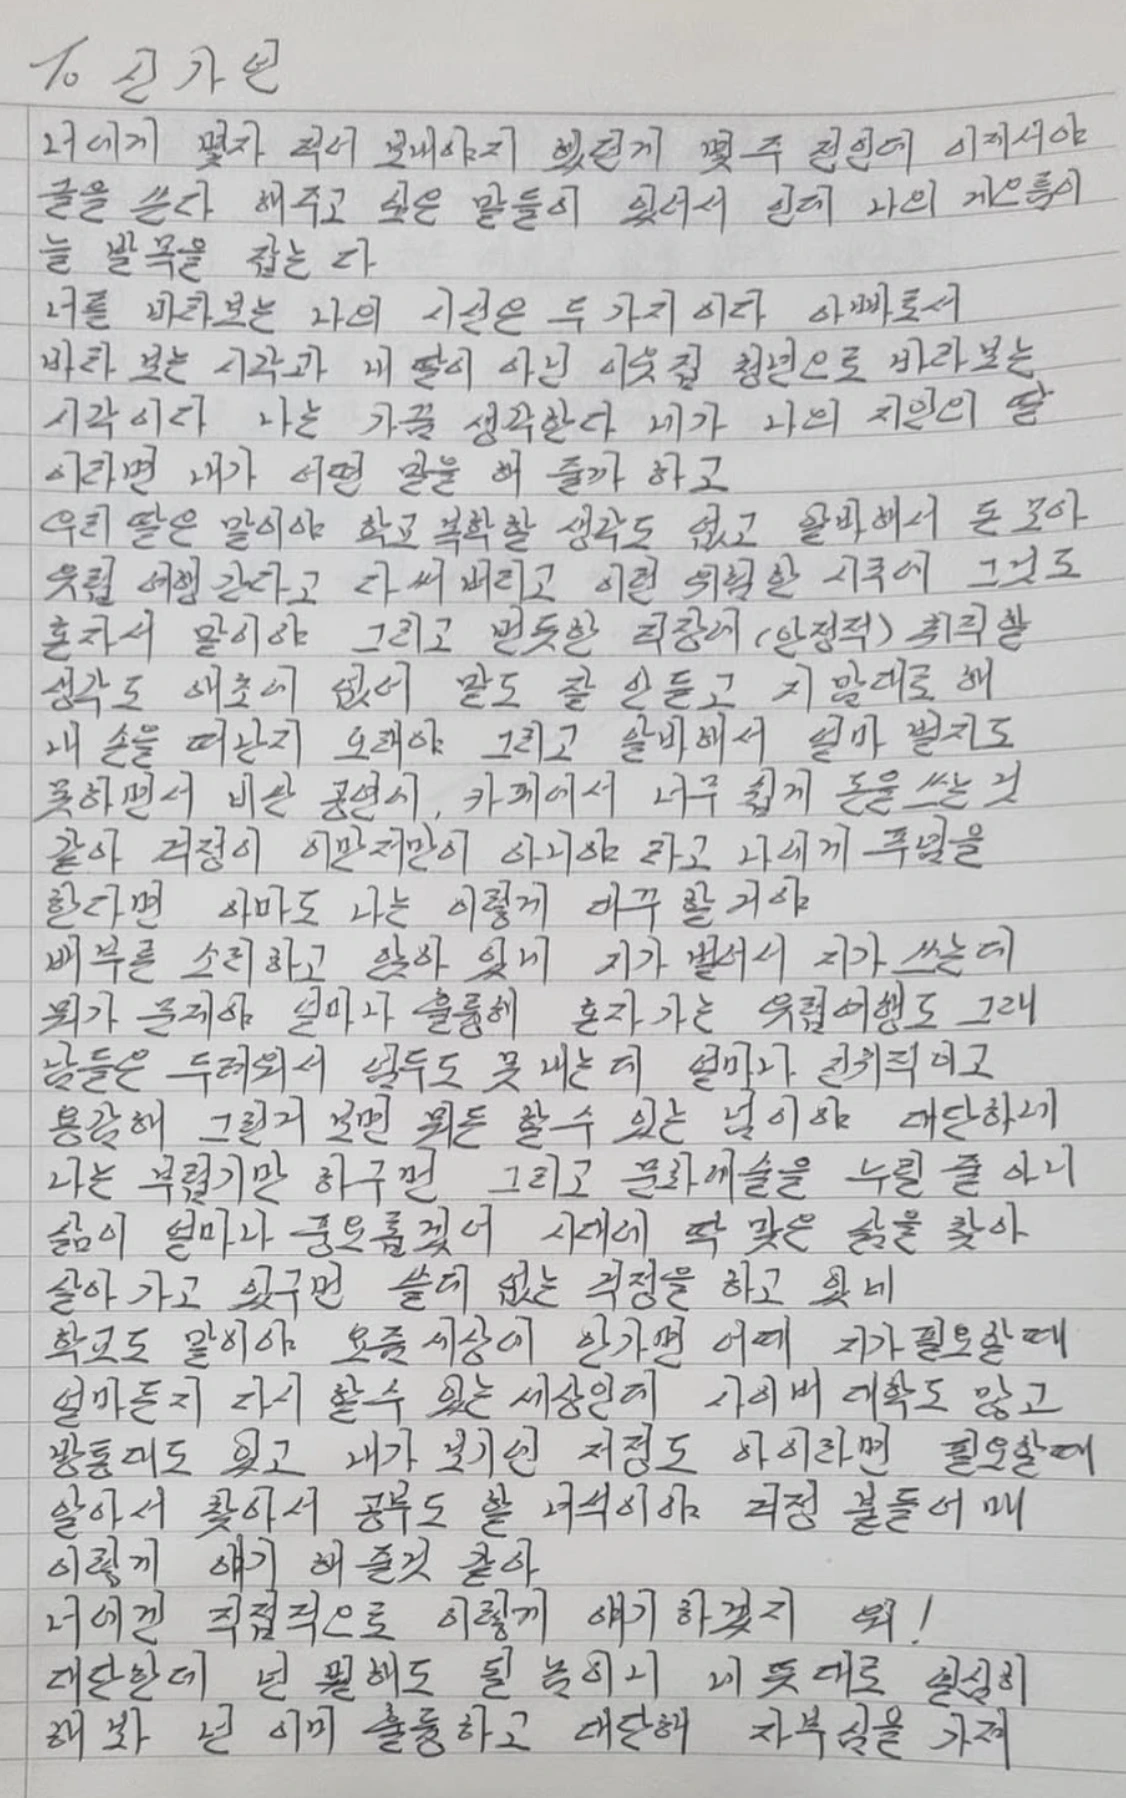 To 신가넌
너에게 몇자 적어 보내야지 했던게 몇 주 전인데 이제서야
글을 쓴다 해주고 싶은 말들이 있어서 인데 나의 게으름이
늘 발목을 잡는다
너를 바라보는 나의 시선은 두 가지 이다 아빠로서
바라 보는 시각과 내 딸이 아닌 이웃집 청년으로 바라보는
시각이다 나는 가끔 생각한다 네가 나의 지인의 딸
이라면 내가 어떤 말을 해 줄까 하고
우리 딸은 말이야 학교 복학할 생각도 없고 알바해서 돈 모아
유럽 여행 간다고 다 써 버리고 이런 위험한 시국에 그것도
혼자서 말이야 그리고 번듯한 직장에 (안정적) 취직할
생각도 애초에 없어 말도 잘 안듣고 지 맘대로 해
내 손을 떠난지 오래야 그리고 알바해서 얼마 벌지도
못하면서 비싼 공연에, 카페에서 너무 쉽게 돈을 쓰는 것
같아 걱정이 이만저만이 아니야 라고 나에게 푸념을
한다면 아마도 나는 이렇게 대꾸 할거야
배부른 소리하고 앉아 있네 지가 벌어서 지가 쓰는데
뭐가 문제야 얼마나 훌륭해 혼자 가는 유럽여행도 그래
남들은 두려워서 엄두도 못 내는데 얼마나 진취적이고
용감해 그런거 보면 뭐든 할 수 있는 넘이야 대단하네
나는 부럽기만 하구먼 그리고 문화예술을 누릴 줄 아니
삶이 얼마나 풍요롭겠어 시대에 딱 맞은 삶을 찾아
살아 가고 있구먼 쓸데 없는 걱정을 하고 있네
학교도 말이야 요즘 세상에 안가면 어때 지가 필요할 때
얼마든지 다시 할수 있는 세상인데 사이버 대학도 많고
방통대도 있고 내가 보기엔 저정도 아이라면 필요할때
알아서 찾아서 공부도 할 녀석이야 걱정 붙들어 매
이렇게 얘기 해 줄것 같아
너에겐 직접적으로 이렇게 얘기 하겠지 와!
대단한데 넌 뭘해도 될 놈이니 네 뜻대로 열심히
해 봐 넌 이미 훌륭하고 대단해 자부심을 가져